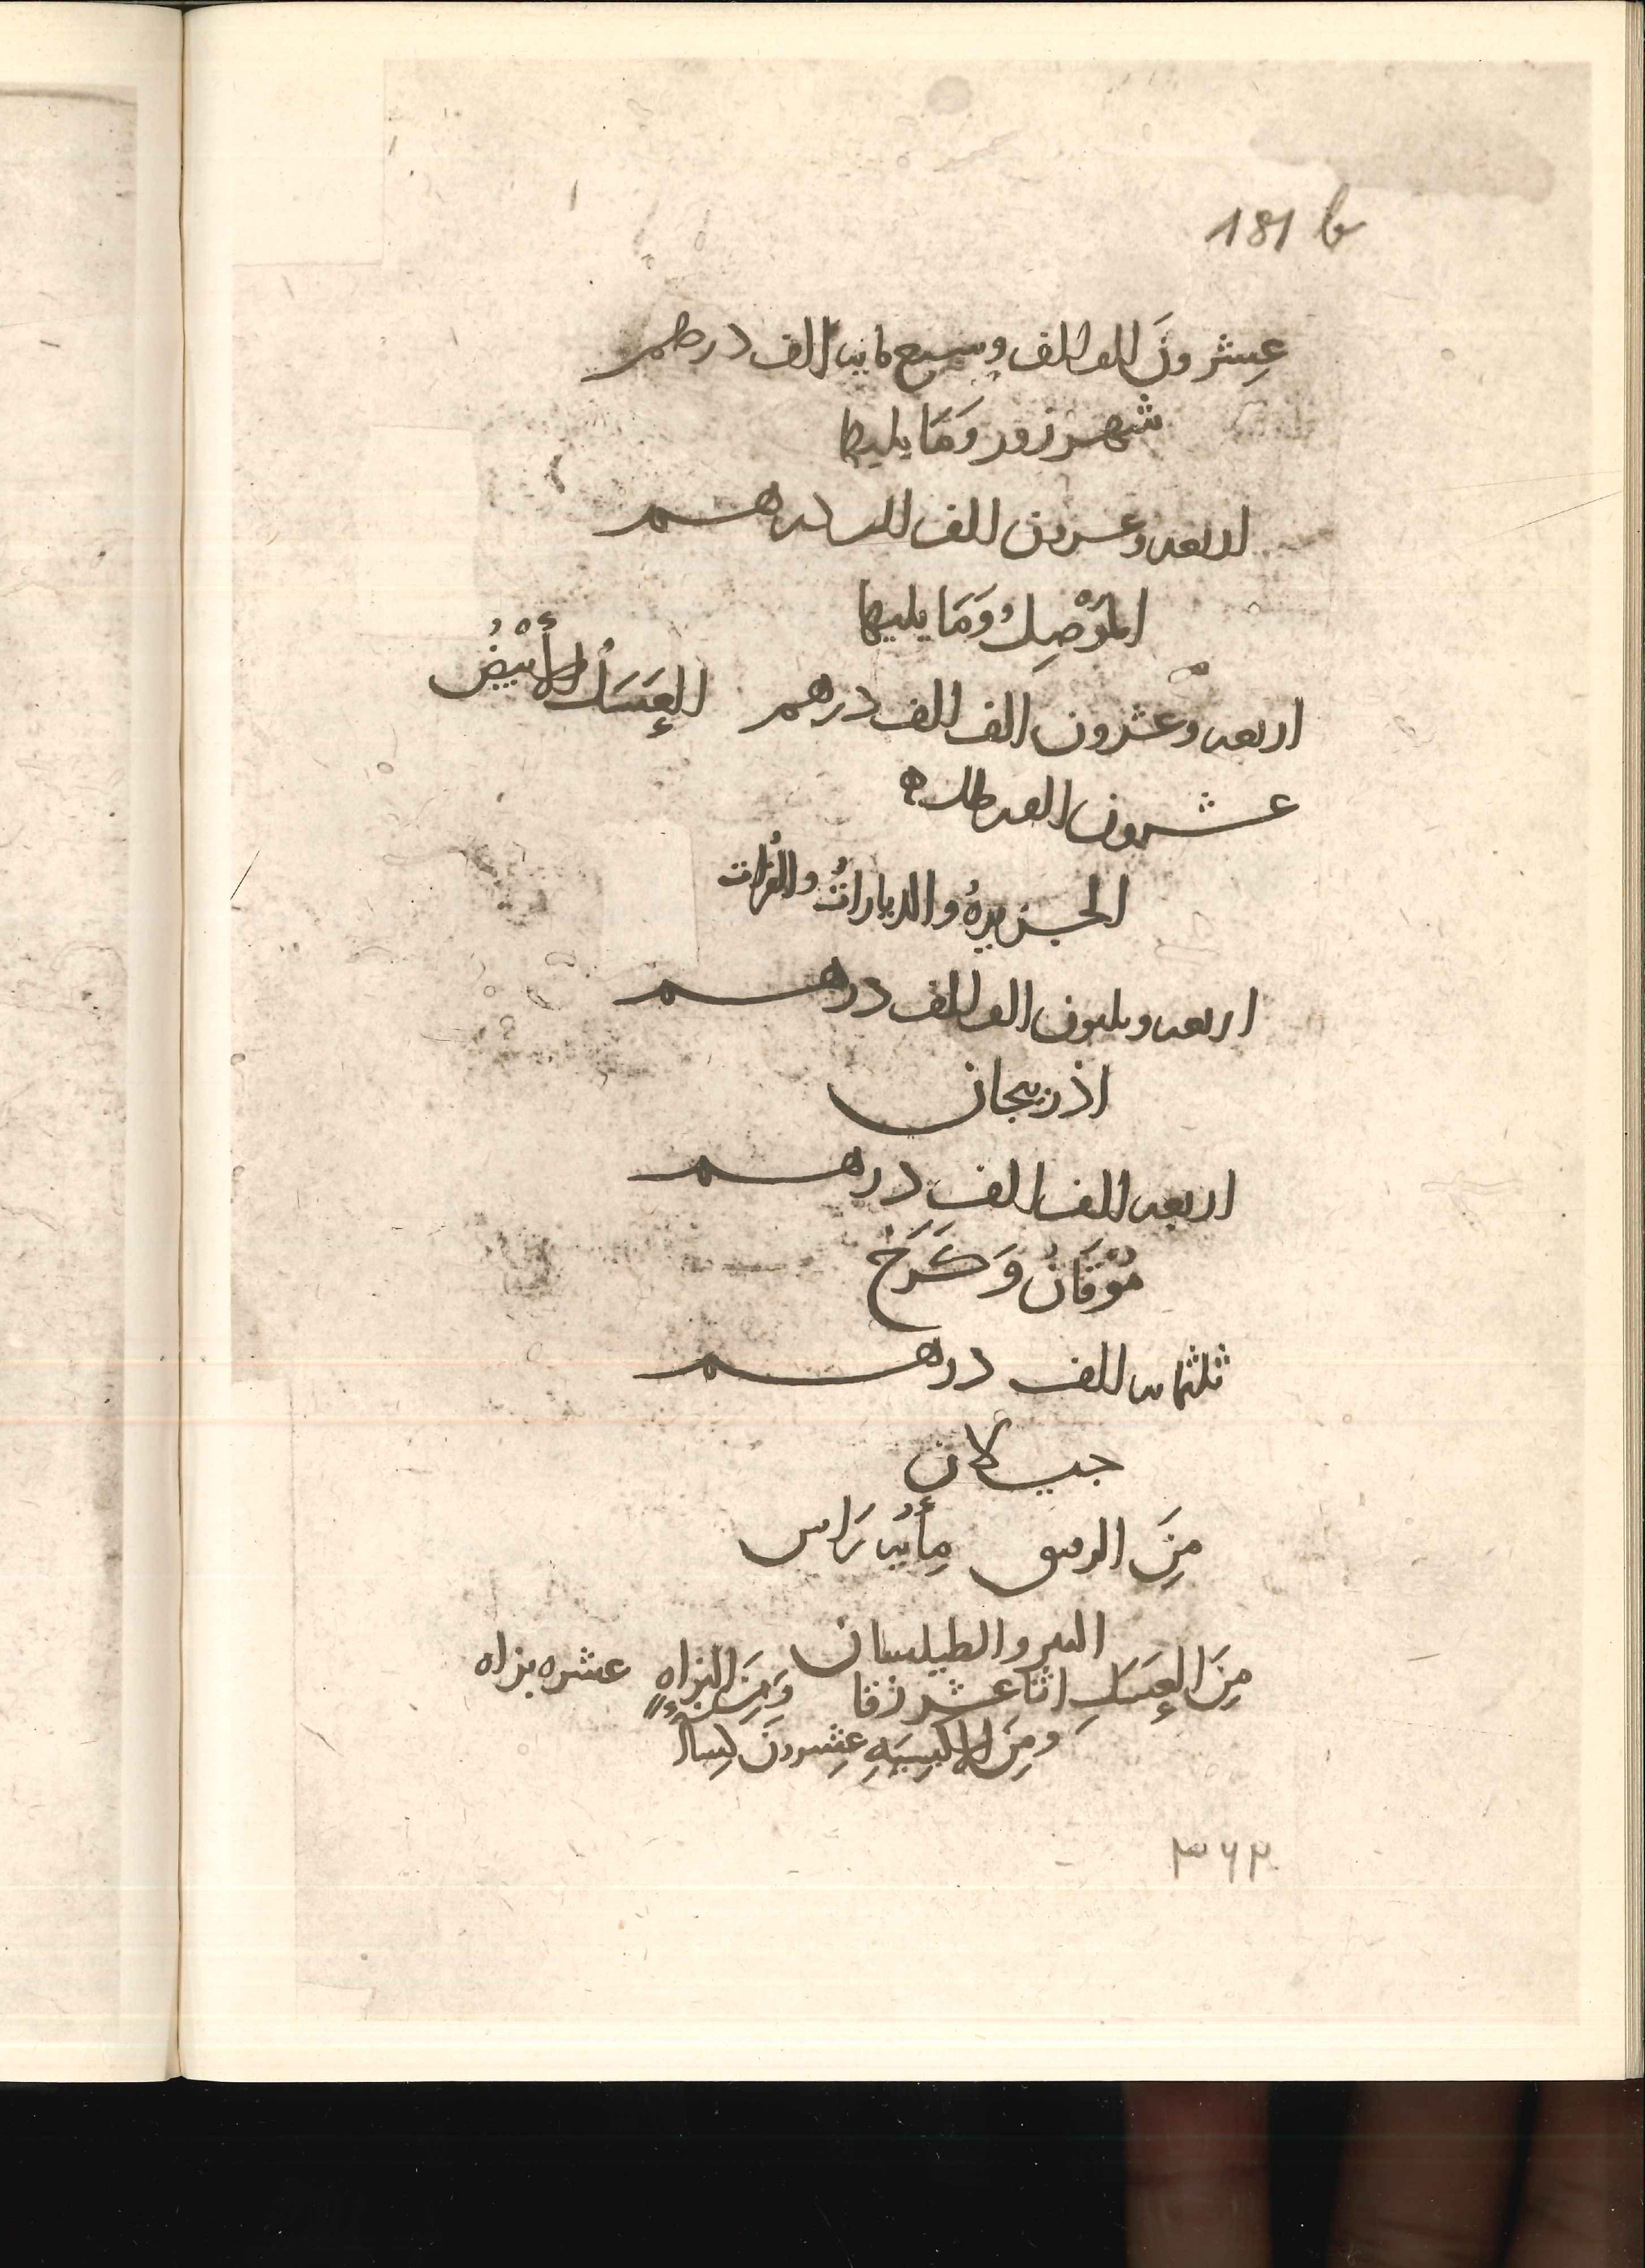 181 b
عِشرونَ الف الف وسبع مايه الف درهم
شهرزور وَمَا يليها
اربعه وعسرين الف الف درهم
المَوْصِلُ وَمَا يليها
اربعه وعشرون الف الف درهم العَسَل الأَبْيضُ
عشرون الف رطل
الجزيرهُ والديارات والفُرات
اربعه وثلثون الف الف درهم
اذربيجان
اربعه الف الف درهم
مُوْقَانُ وَكَرَخ
ثلثمايه الف درهم
جيلان
مِنَ الرقيق مِأيه رَاس
الببر والطيلسان
مِنَ العسَلِ اثنا عشر زقا وَمِنَ البزاهِ عشره بزاه
ومِنَ الاكسِيَهِ عِشرونَ كساً
٣٦٢